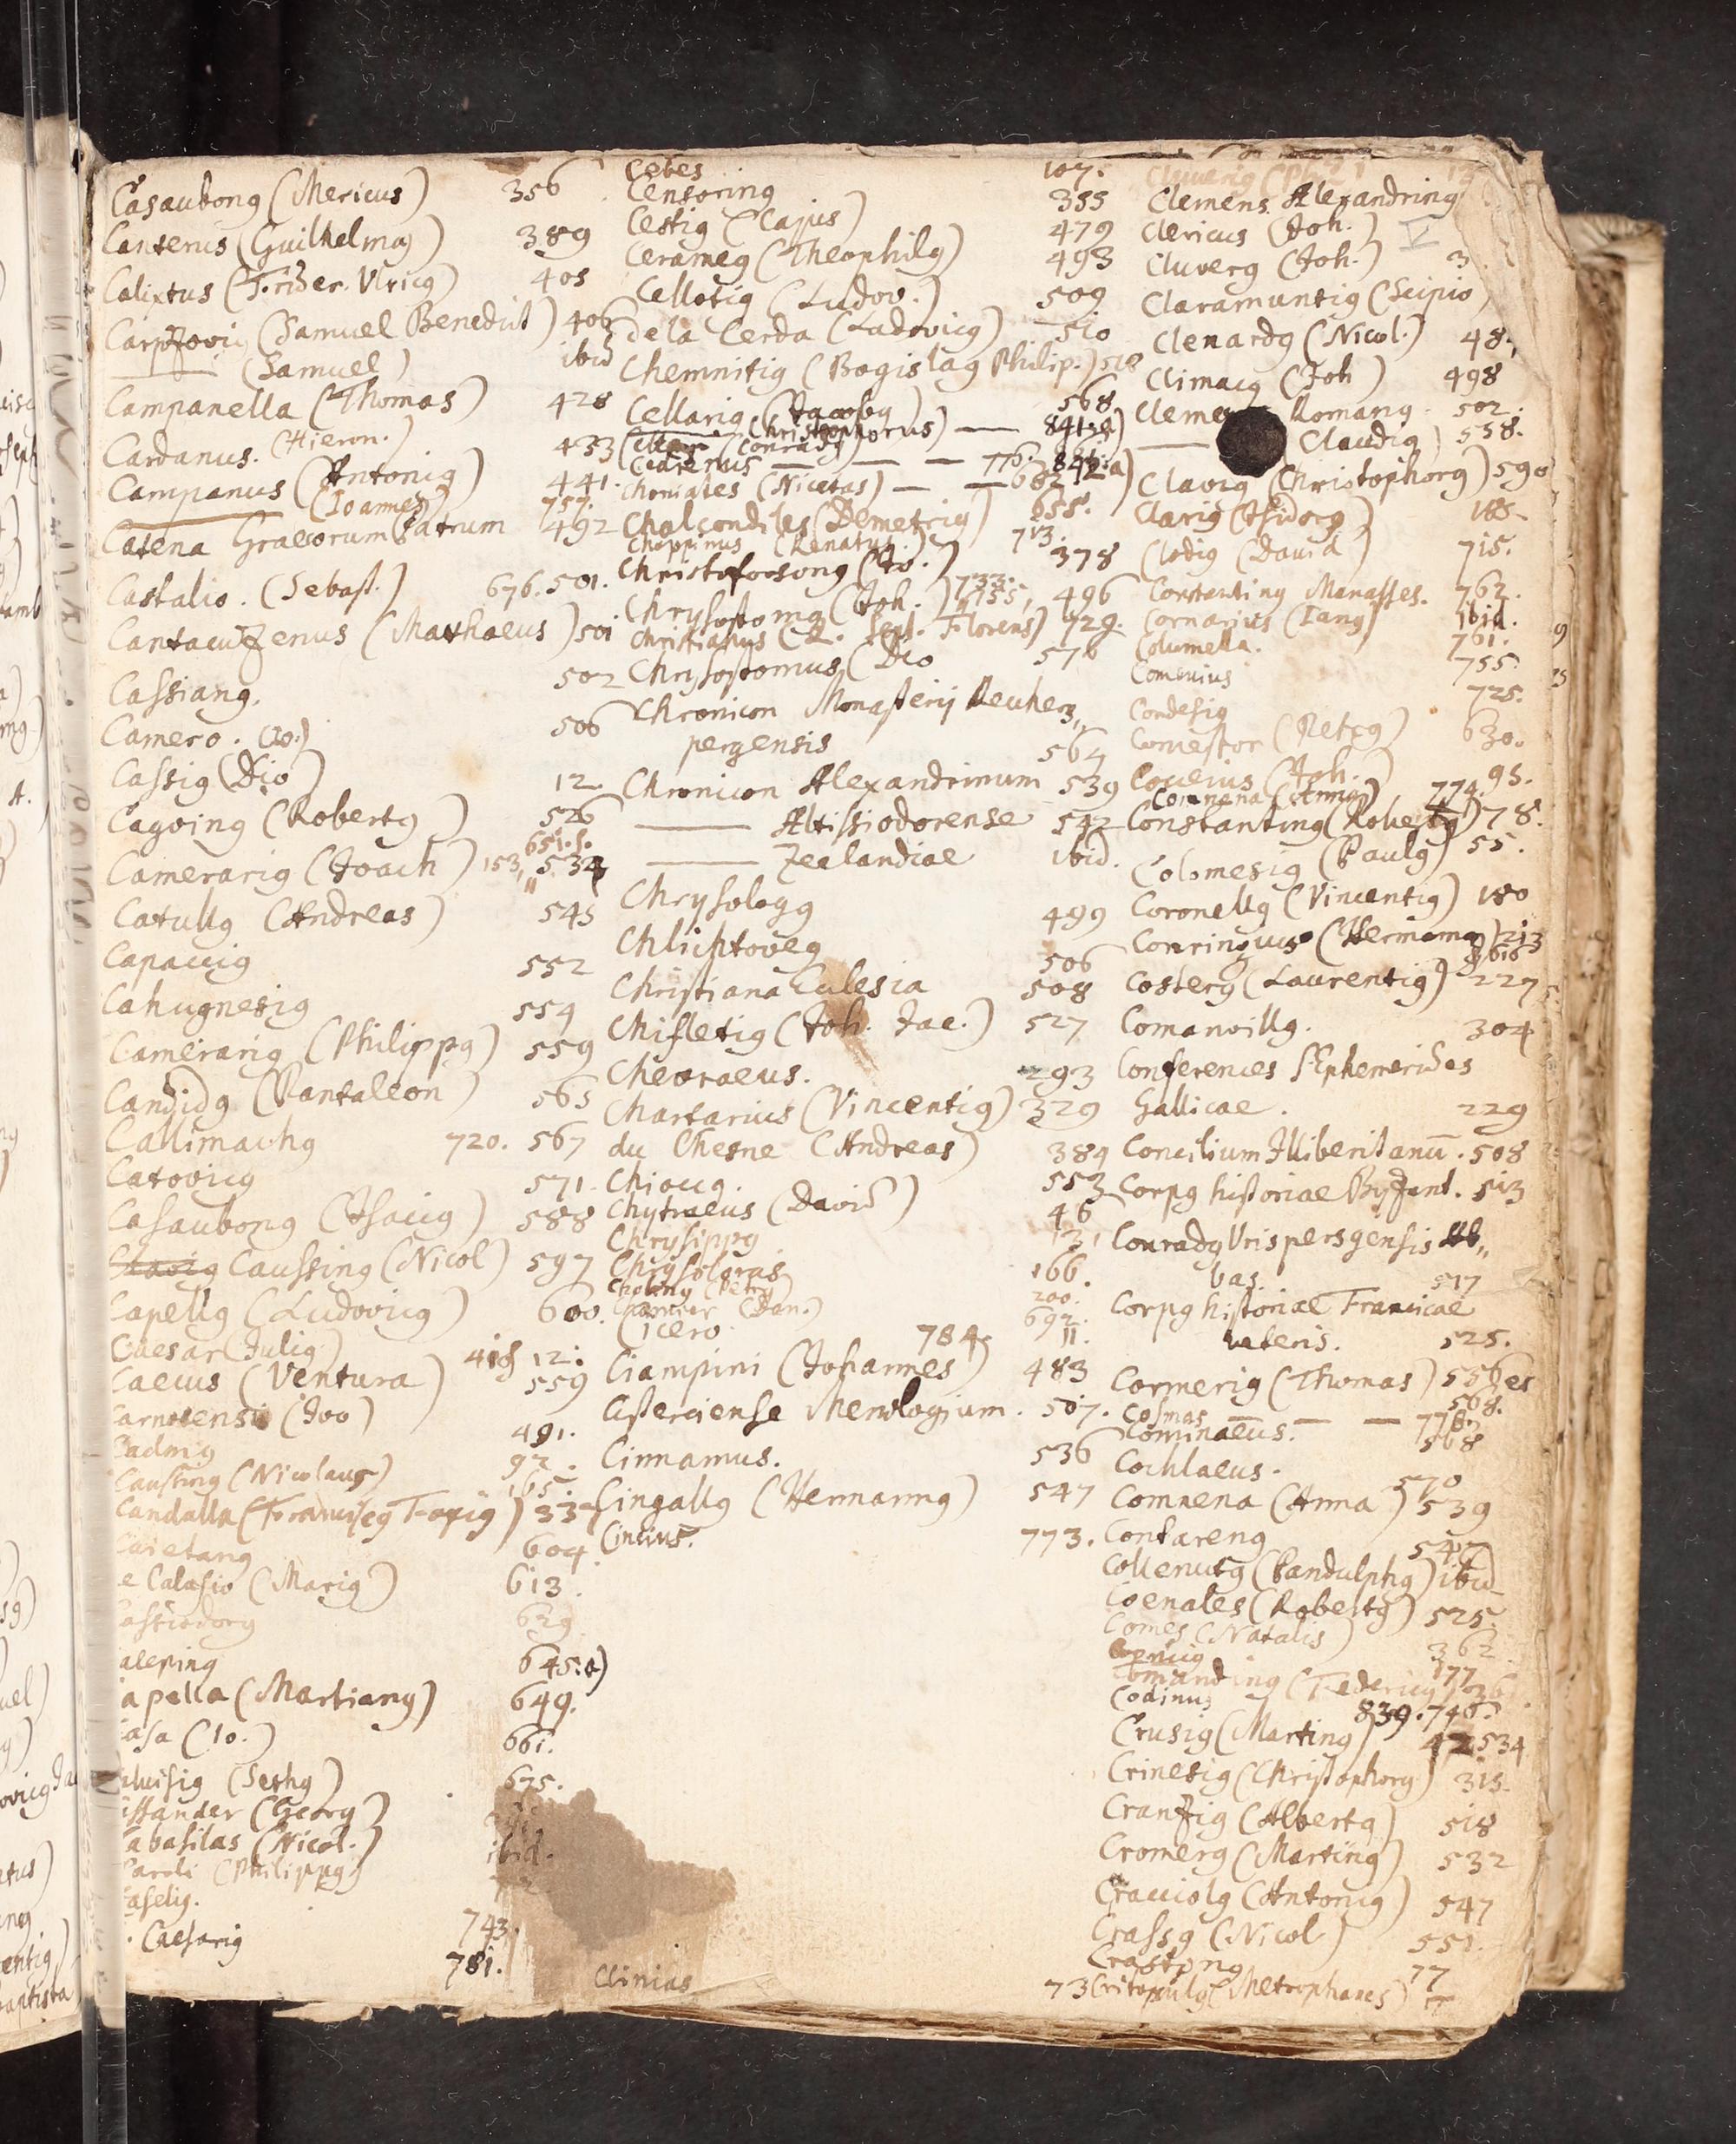 Casaubong (Mericus) 356
Canterus (Guilhelmg) 389
Calixtus (Frider. Vlricg) 405
Carpzovig (Samuel Benedict) 406
(Samuel) ibid
Campanella (Thomas) 428
Cardanus. (Hieron.) 433
Campanus (Antonig) 441.
(Joannes) 757.
Catena Graecorum Patrum 492
Castalio. (Sebast.) 676. 501.
Cantacuzenus (Mathaeus) 501
Cassiang. 502
Camero. (Jo.) 506
Cassig (Dio) 12.
Cagving (Robertg) 526
651.
Camerarig (Joach) 153,, 534
Catullg (Andreas) 545
Capaccig 552
Cahugnesig 554
Camerarig (Philippg) 559
Candidg (Pantaleon) 565
Callimachg 720. 567
Catovicg 571.
Casaubong (Isaacg) 588
Caussing (Nicol) 597
Capellg (Ludovicg) 600.
Caesar (Julig) 418 12.
Caecus (Ventura) 559
Carnotensis (Ivo) 491.
Cadmig 92.
Caussing (Nicolaus) 165.
Candalla (Franciscg Foxig) 337
Caietang 604
e Calasio (Marig) 613.
assiodorg 629
aleping 645.a)
apella (Martiang) 649.
asa (Jo.) 661.
alvisig (Sethg) 675.
assander (Georg)
abasilas (Nicol.) ibid.
Caroli (Philippg)
aselig. 743.
Caesarig 781.
Cebes 107.
Censoring 355
Cestig (Cajus) 479
Cerameg (Theophilg) 493
Cellotig (Ludov.) 509
de la Cerda (Ludovicg) 510
Chemnitig (Bogislag Philip.) 518
Cellarig (Jacobg) 568
(Christophorus) — 841.a)
Cedrenus — — — 776. 842.a)
Choniates (Nicetas) — — 682
Chalcondiles (Demetrig) 658.
Choppinus (Renatus) 713.
Christofoosong (Jo.) 378
Chrysostomg (Joh.) 733. 755, 496
Christianus (Q. Sept. Florens) 729.
Chrysostomus (Dio 576
Chronicon Monasterij Reicherz,,
pergensis 564
Chronicon Alexandrinum 539
—— Altissiodorense 542
—— Zeelandiae ibid.
Chrysologg 499
Chlichtoveg 506
Christiana Eclesia 508
Chifletig (Joh. Jac.) 527
Chevraeus. 293
Chartarius (Vincentig) 329
du Chesne (Andreas) 384
Chiocg. 553
Chytraeus (David) 46
Chrysippg 131
Chrysoloras 166.
Choling (Petrg) 200.
Chamier (Dan.) 692.
Cicero 784. 11.
Ciampini (Johannes) 483
Cisterciense Menologium. 507.
Cinnamus. 536
Cingallg (Hermanng) 547
Cincius. 773.
Clinias 73
Cluverig (Ph
Clemens Alexandring
Clericus (Joh.)
Cluverg (Joh.) 3
Claramuntig (Scipio)
Clenardg (Nicol.) 48.
Climacg (Joh) 498
Clemens Romang 502.
—— Claudig 558.
Clavig (Christophorg) 590
Clarig (Isidorg) 185.
Clodig (David) 715.
Constanting Manasses. 762.
Cornarius (Iang) ibid.
Columella. 761.
Comenius 755.
Cordesig 725.
Comestor (Petrg) 630.
Coccius (Joh.) 95.
Comnena (Anna) 774.
Constanting (Robertg) 78.
Colomesig (Paulg) 55.
Coronellg (Vincentig) 180
Conringius (Hermanng) 213
Costerg (Laurentig) 227
Comanvillg. 304
Conferences Ephemerides
Gallicae. 229
Concilium Illiberitanū. 508
Corpg historiae Byzant. 513
Conradg Vrispersgensis Ab,,
bas. 517
Corpg historiae Francicae
veteris. 525.
Cormerig (Thomas) 556 et
568.
Cosmas — — — 776.
Cominaeus. 568
Cochlaeus. 570
Comnena (Anna) 539
Contareng 547
Collenutg (Pandulphg) ibid
Coenales (Robertg) 525
Comes (Natalis) 362
177
Commanding (Federicg)
Codinus 839. 746.
Crusig (Marting) 42 534
Crinesig (Christophorg) 315.
Cranzig (Albertg) 518
Cromerg (Marting) 532
Cracciolg (Antonig) 547
Crassg (Nicol) 551.
Crastong 77
Critopulg (Metrophanes)